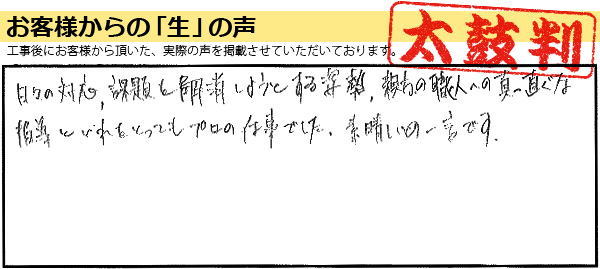 お客様からの「生」の声
太鼓判
工事後にお客様から頂いた、実際の声を掲載させていただいております。
日々の対応, 課題を解消しようとする姿勢, 親方の職人への真っ直ぐな
指導といずれをとってもプロの仕事でした. 素晴しいの一言です.